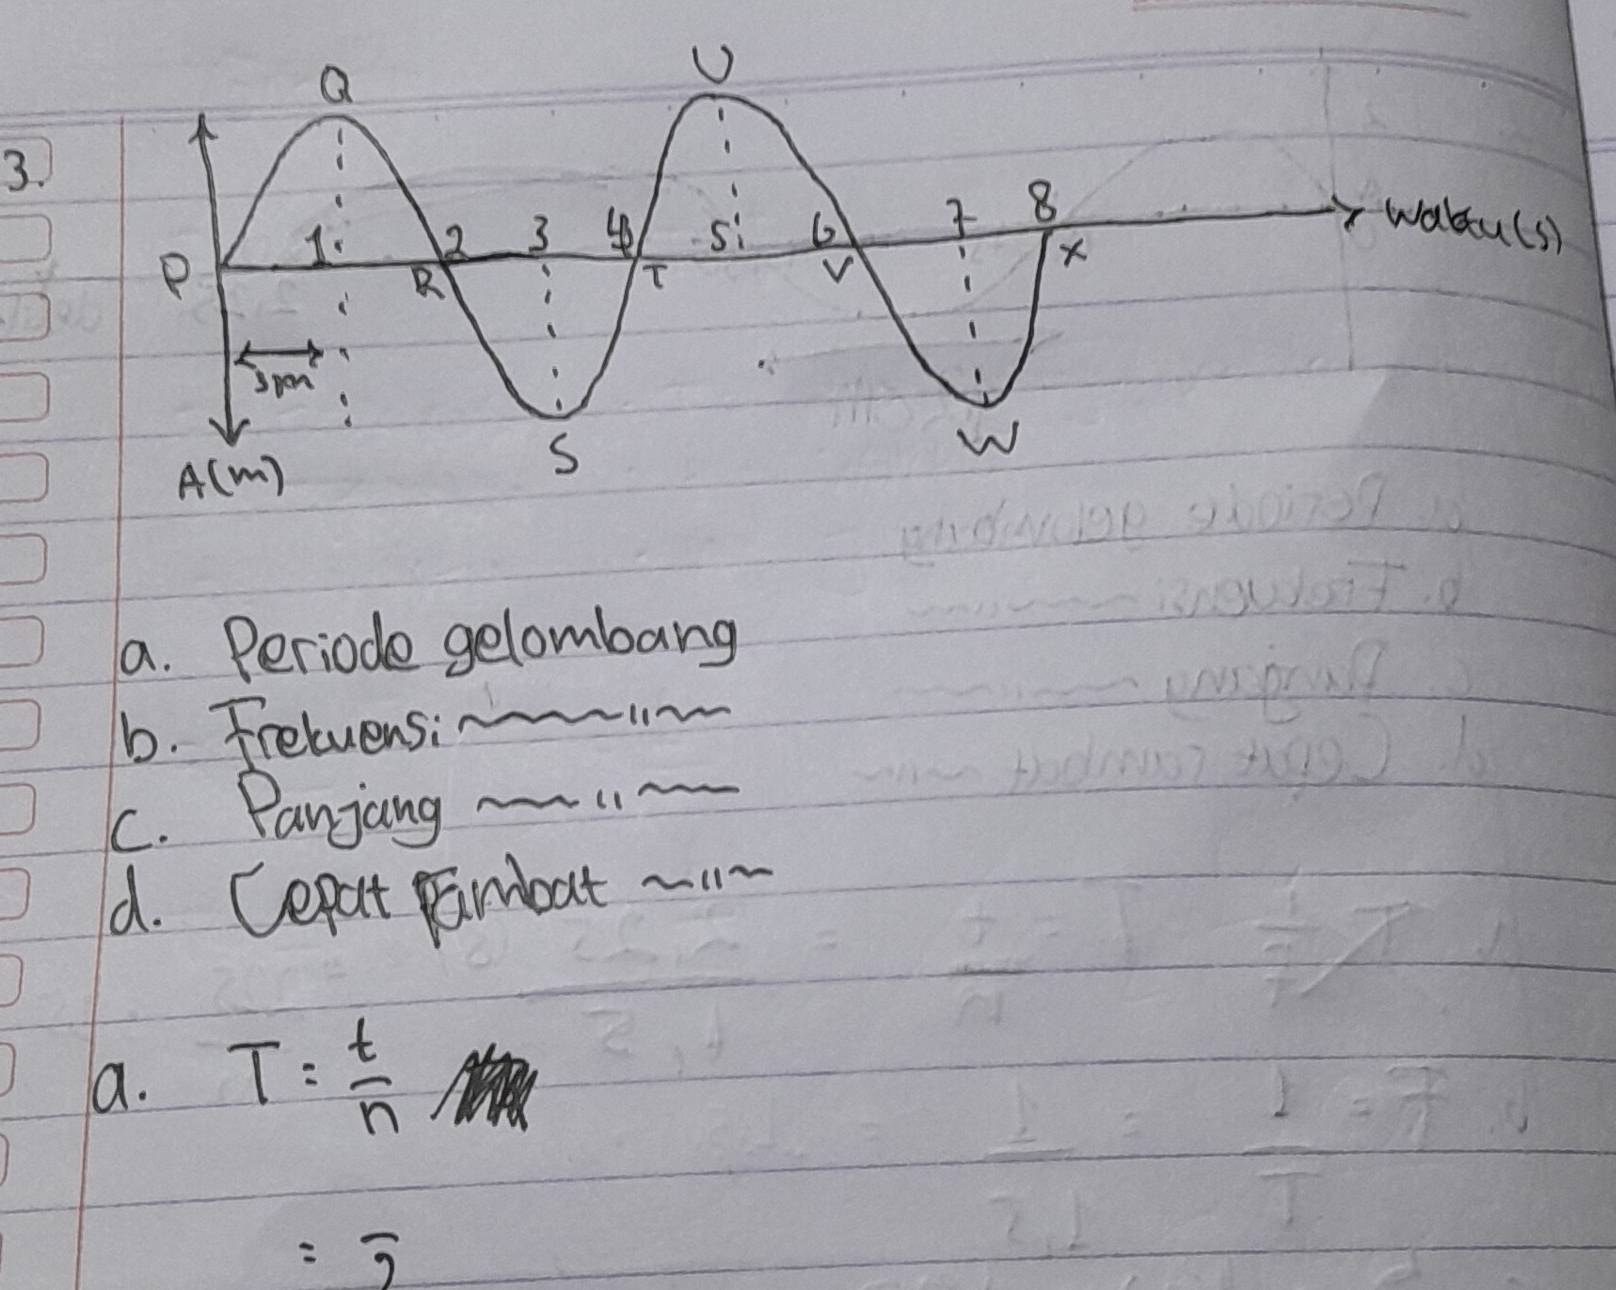 3.
Q U
P 1 2 3 4 5 6 7 8 Waktu(s)
R T V X
A(m) S W
a. Periode gelombang
b. Frekuensi ~~~"~
c. Panjang ~~"~~
d. Cepat rambat ~"~
a. T = t/n
=